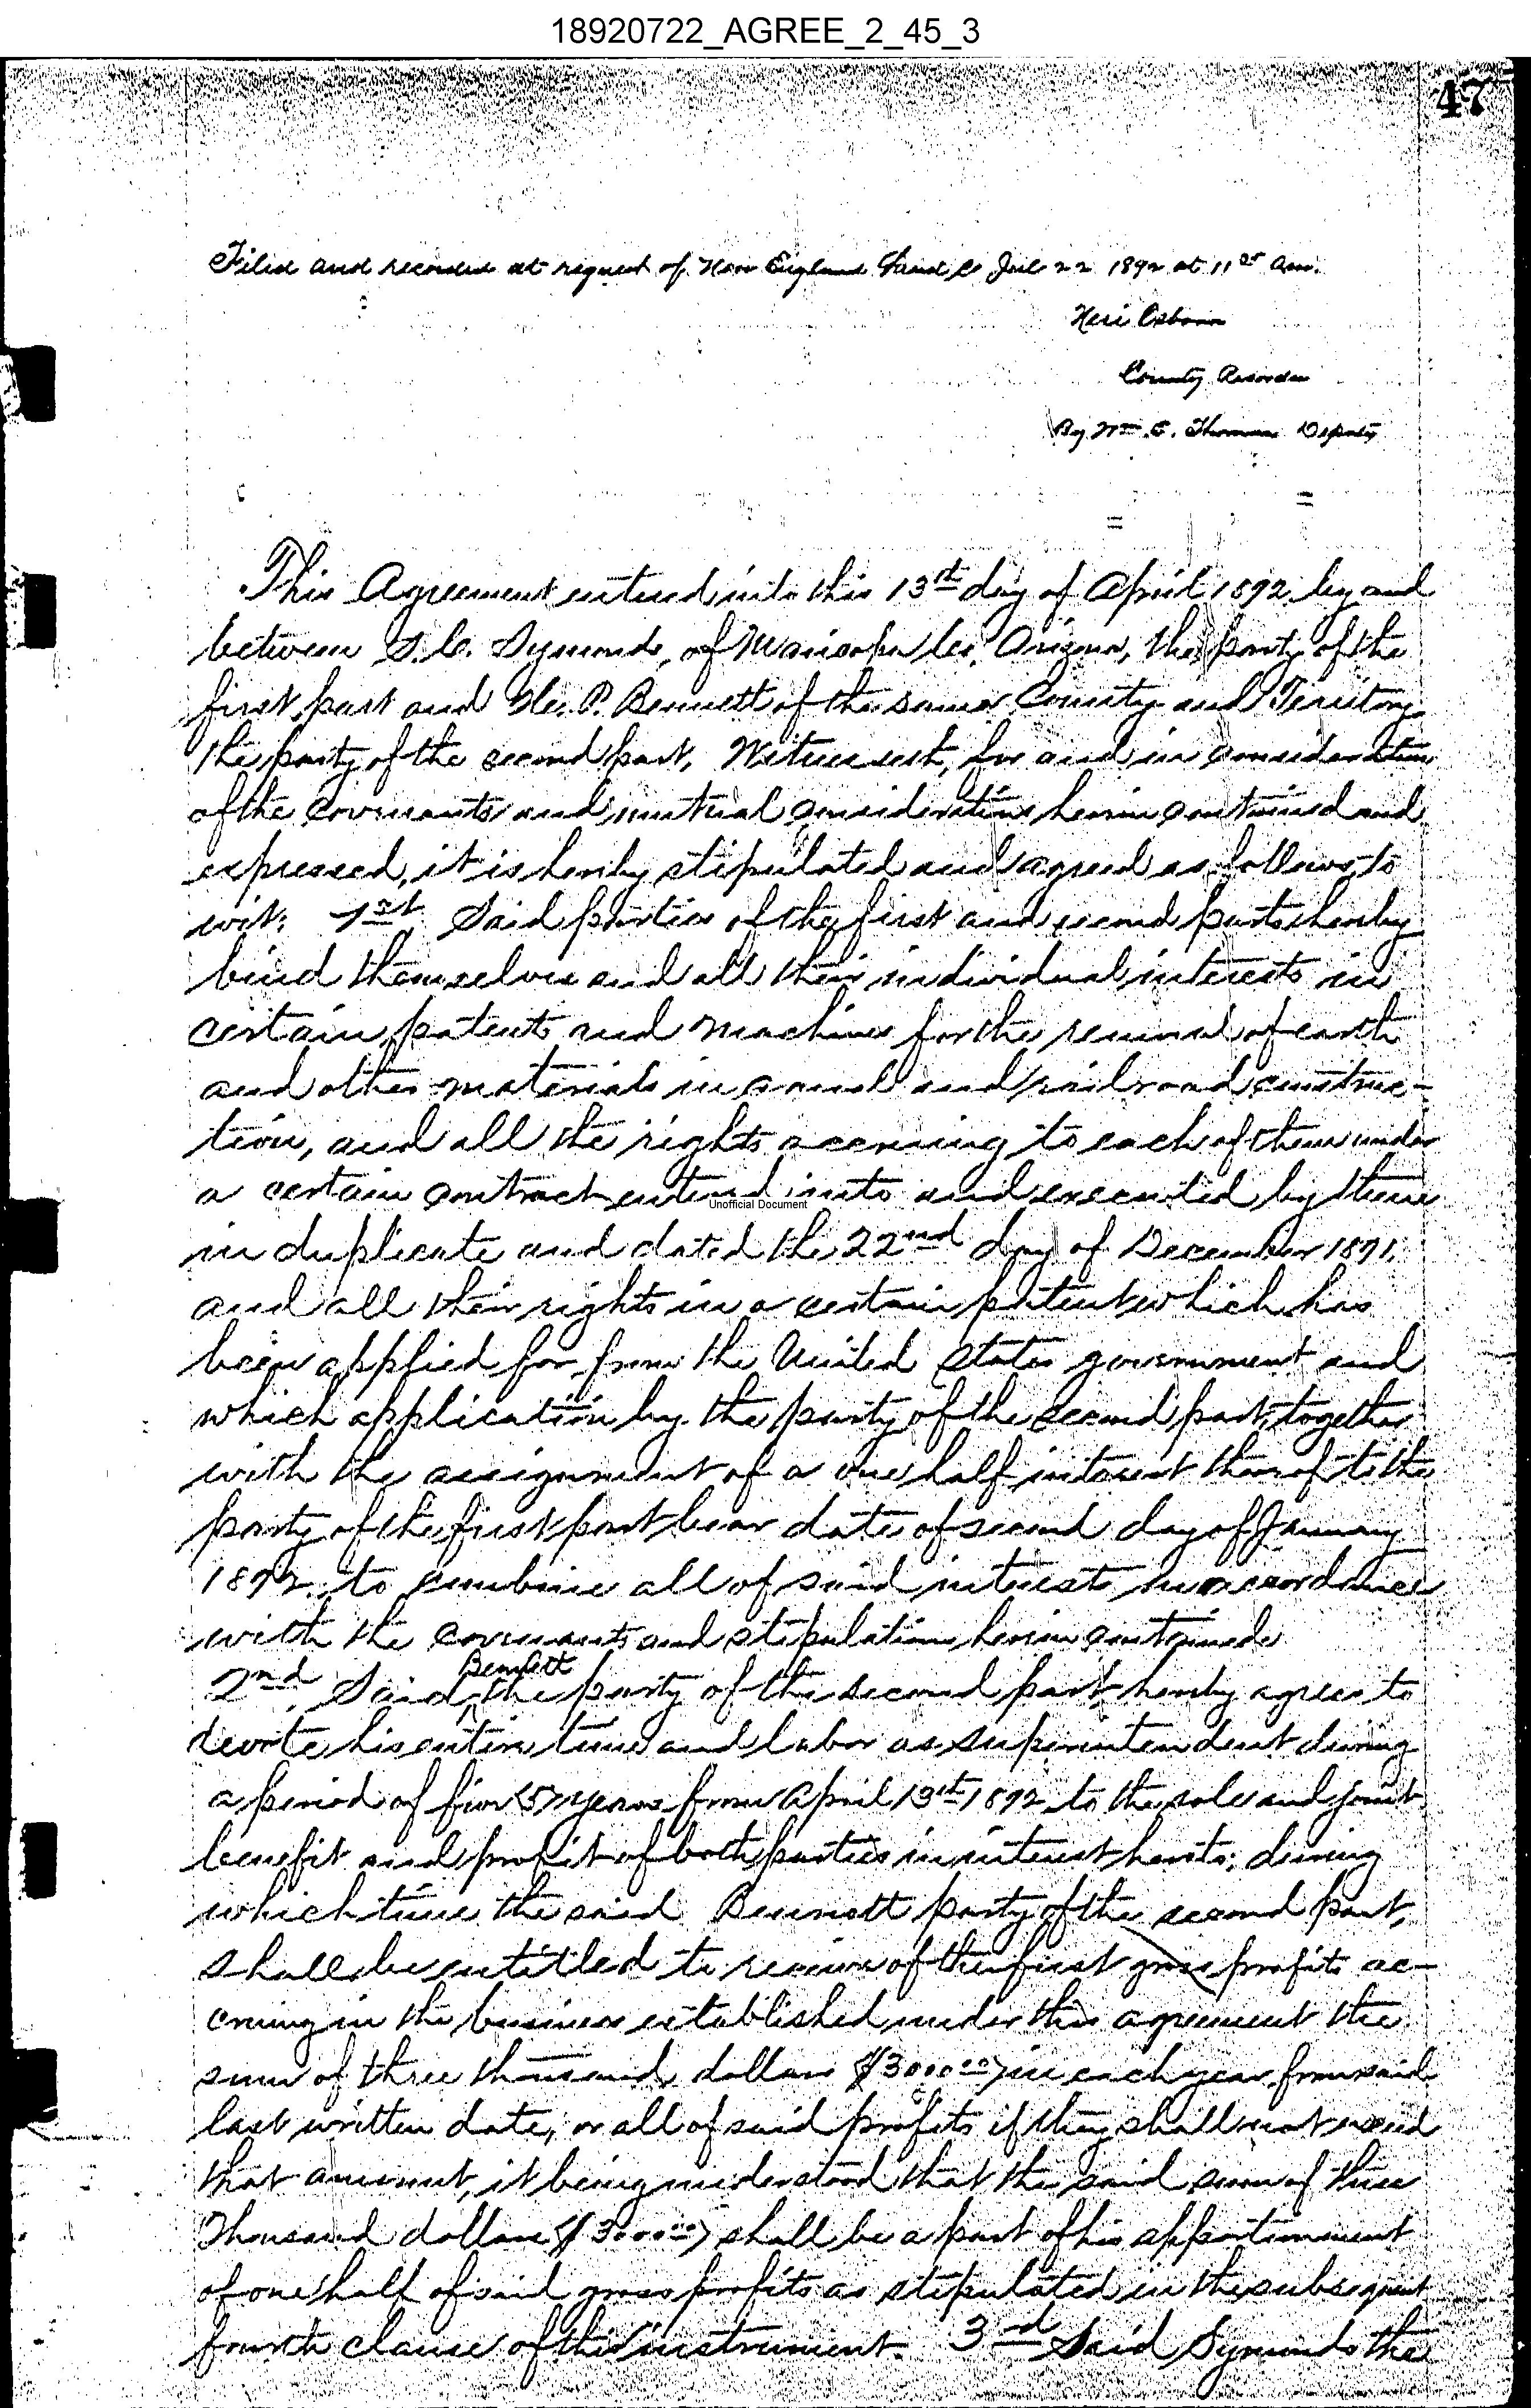 18920722_AGREE_2_45_3
47
Filed and recorded at request of New England Land Co Jul 22 1892 at 11 25 am.
Neri Osborn
County Recorder
By Wm. E. Thomas Deputy
This Agreement entered into this 13th day of April 1892 by and
between S. C. Symonds, of Maricopa Co. Arizona, the party of the
first part and P. Bennett of the same County and Territory
the party of the second part, Witnesseth, for and in consideration
of the covenants and mutual considerations herein contained and
expressed, it is hereby stipulated and agreed as follows to
wit: 1st Said parties of the first and second parts hereby
bind themselves and all their individual interests in
certain patents and machines for the removal of earth
and other materials in canal and railroad construc-
tion, and all the rights accruing to each of them under
a certain contract entered into and executed by them
Unofficial Document
in duplicate and dated the 22nd day of December 1891,
and all their rights in a certain patent which has
been applied for from the United States government and
which application by the party of the second part, together
with the assignment of a one half interest thereof to the
party of the first part bear date of second day of January
1892 to combine all of said interests in accordance
with the covenants and stipulations herein contained.
2nd, Said Bennett the party of the second part hereby agrees to
devote his entire time and labor as superintendent during
a period of five (5) years from April 13th 1892 to the sole and joint
benefit and profit of both parties in interest hereto; during
which time the said Bennett party of the second part,
shall be entitled to receive of the first gross profits ac-
cruing in the business established under this agreement the
sum of three thousand dollars ($3000 00) in each year from said
last written date, or all of said profits if they shall not exceed
that amount, it being understood that the said sum of three
Thousand dollars ($3000 00) shall be a part of his apportionment
of one half of said gross profits as stipulated in the subsequent
fourth clause of this instrument. 3rd Said Symonds the